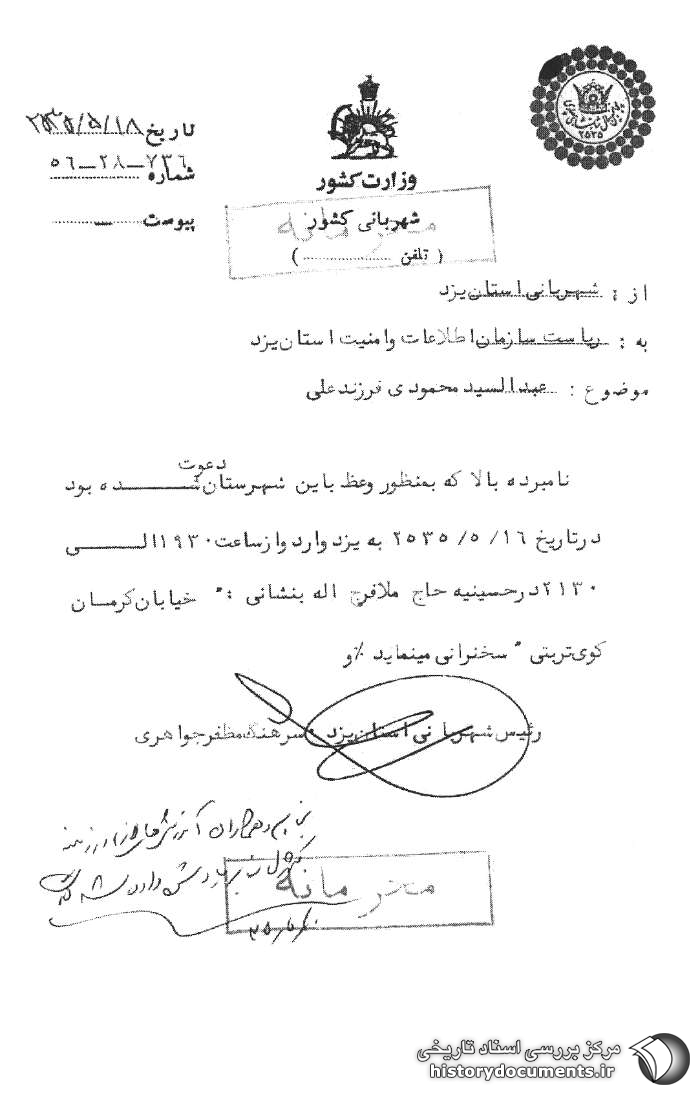 تاریخ ۲۵۳۵/۵/۱۸
شماره ۷۳۶–۲۸–۵۶
پیوست
۲۵۳۵
وزارت کشور
شهربانی کشور
محرمانه
( تلفن .................... )
از : شهربانی استان یزد
به : ریاست سازمان اطلاعات وامنیت استان یزد
موضوع : عبدالسید محمودی فرزند علی
دعوت
نامبرده بالا که بمنظور وعظ باین شهرستان شده بود
درتاریخ ۱۶/ ۵/ ۲۵۳۵ به یزد وارد وازساعت ۱۹۳۰ الی
۲۱۳۰ درحسینیه حاج ملافرج اله بنشانی : " خیابان کرمان
کوی تربتی " سخنرانی مینماید ٪و
رئیس شهربانی استان یزد . سرهنگ مظفر جواهری
محرمانه
مرکز بررسی اسناد تاریخی
historydocuments.ir